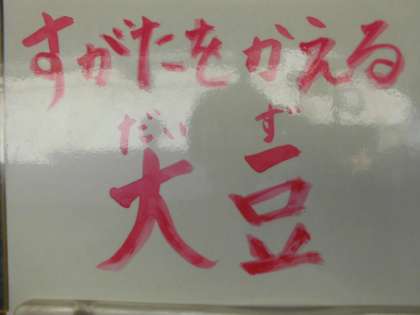 すがたをかえる
だいず
大豆